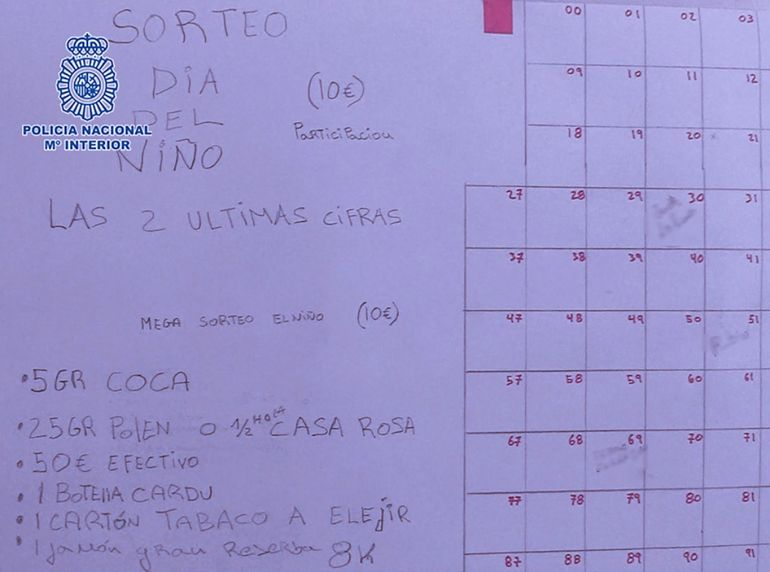 SORTEO
DIA
DEL
NIÑO
(10€)
PARTICIPACION
POLICIA NACIONAL
Mº INTERIOR
LAS 2 ULTIMAS CIFRAS
MEGA SORTEO EL NIÑO (10€)
•5GR COCA
•25GR POLEN O 1/2 CASA ROSA
•50€ EFECTIVO
•1 BOTELLA CARDU
•1 CARTÓN TABACO A ELEJIR
•1 JAMÓN GRAN RESERBA 8K
00 01 02 03
09 10 11 12
18 19 20 21
27 28 29 30 31
37 38 39 40 41
47 48 49 50 51
57 58 59 60 61
67 68 69 70 71
77 78 79 80 81
87 88 89 90 91